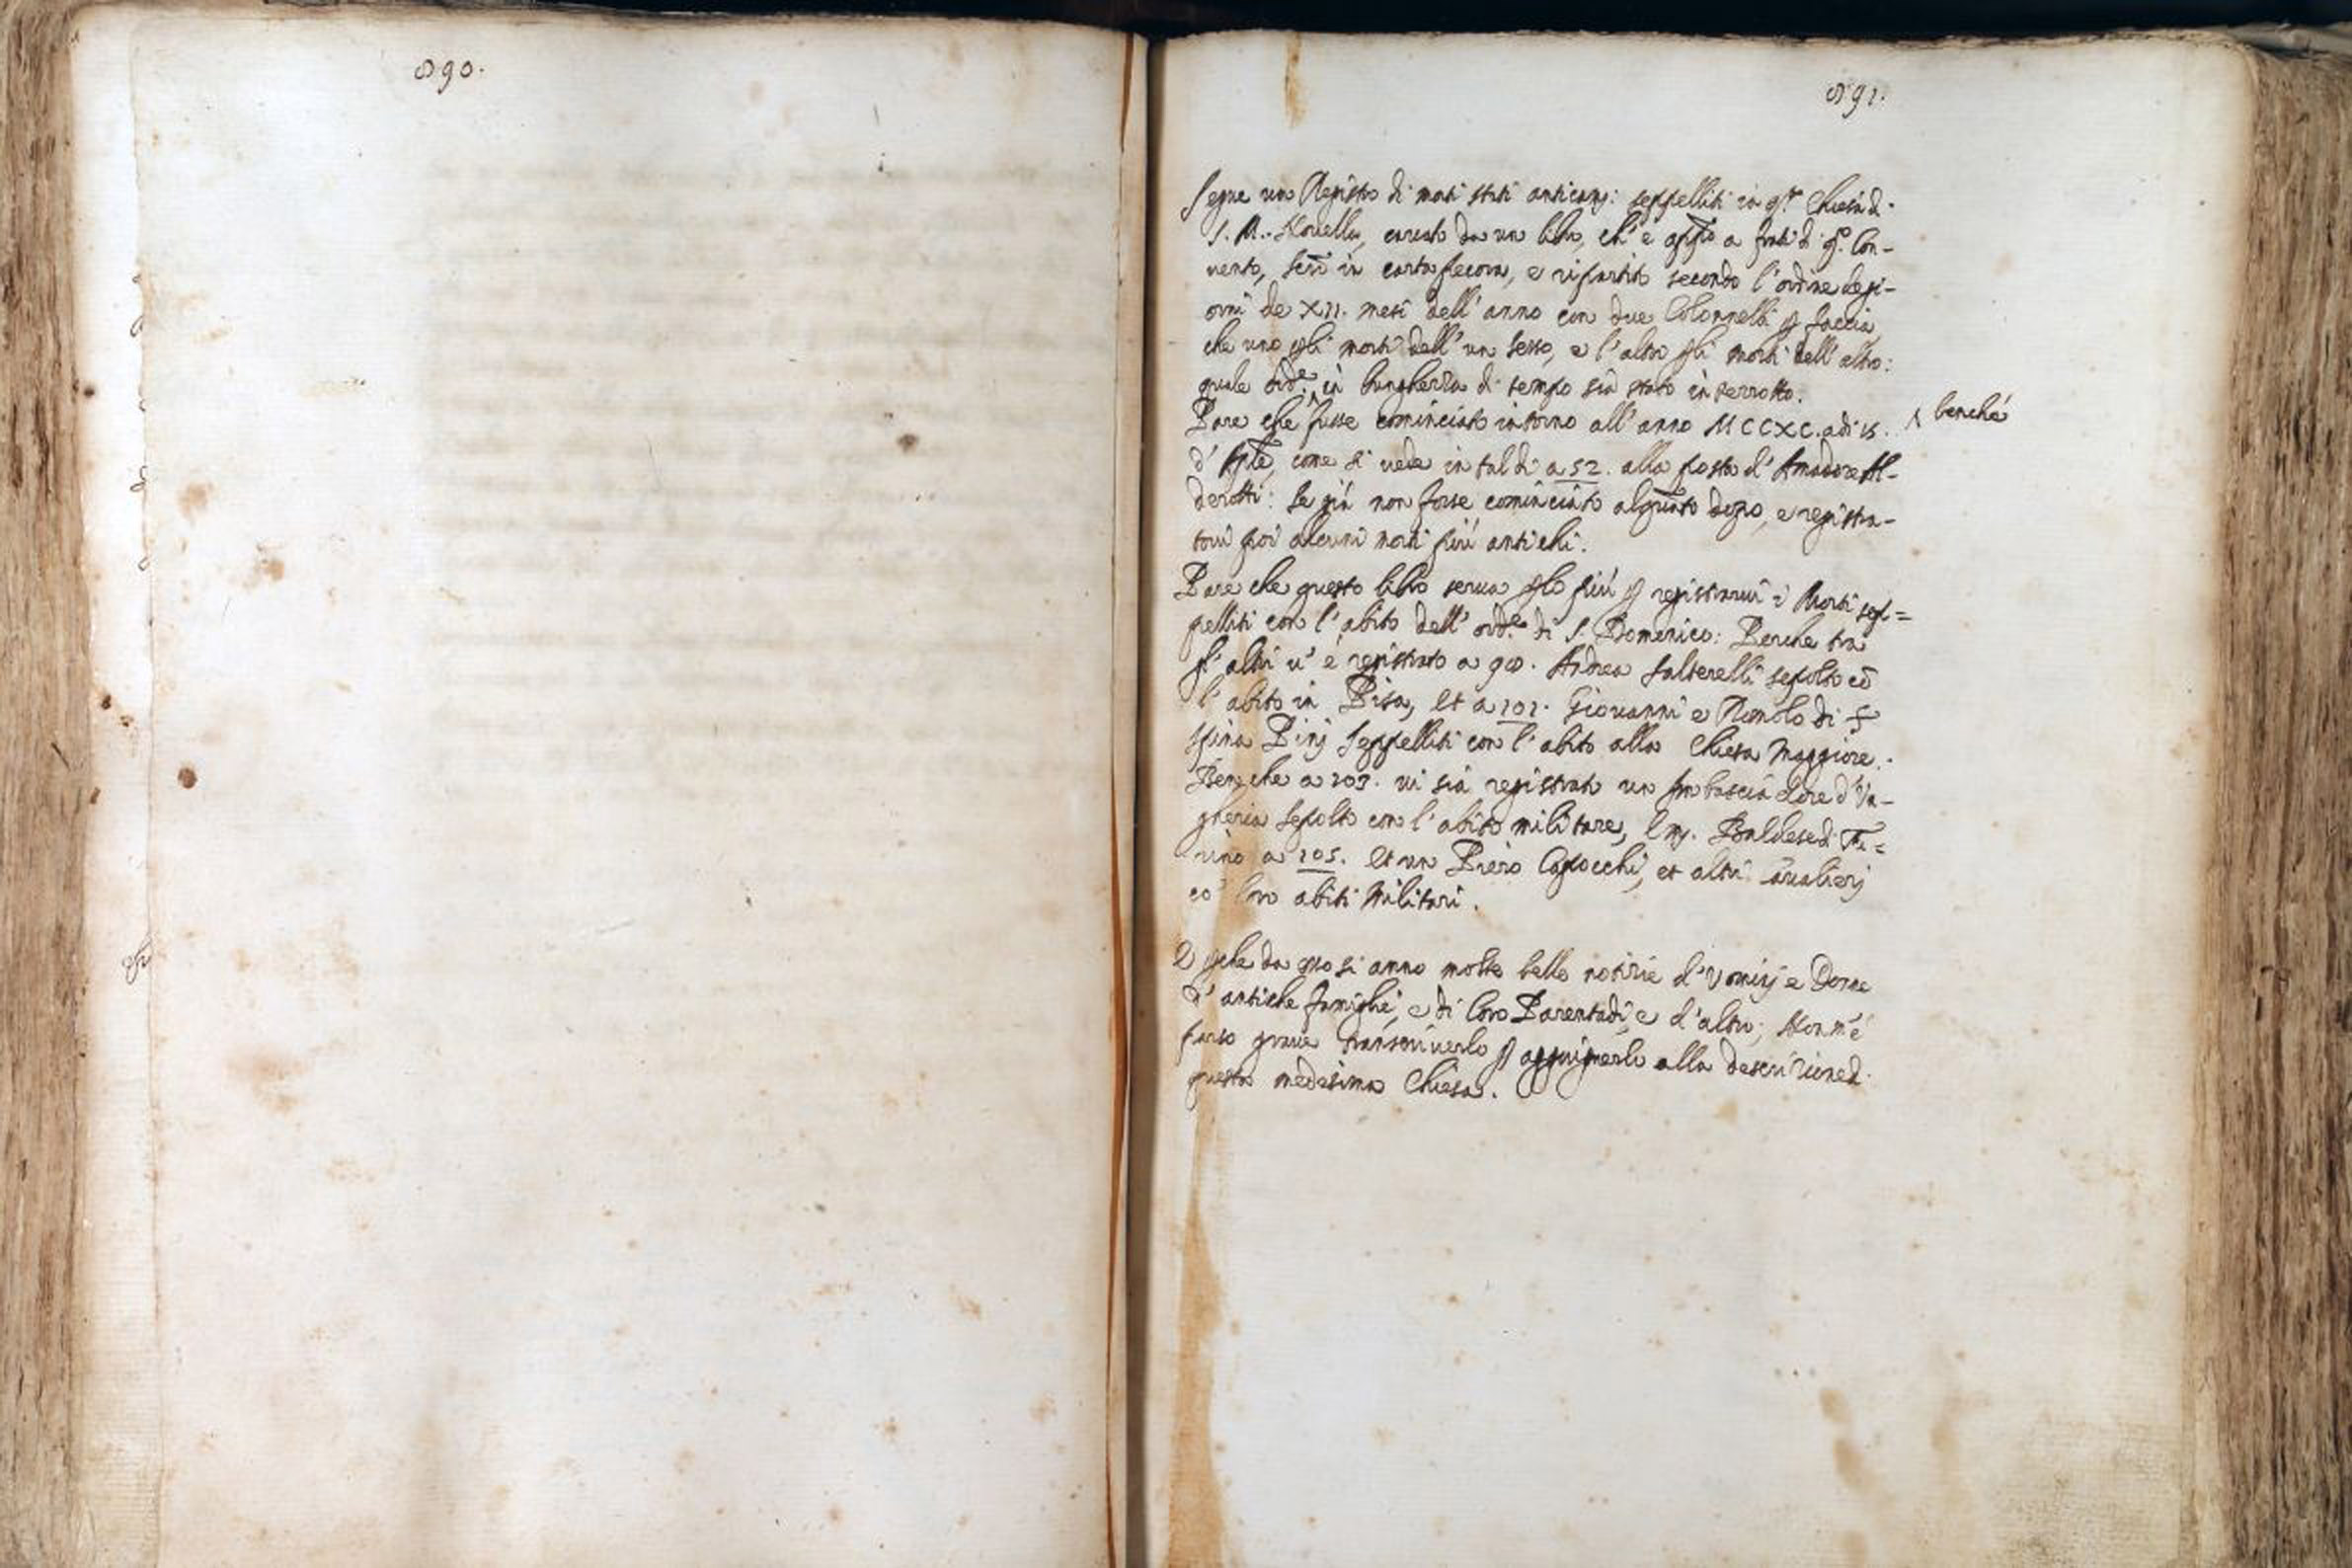 890.
891.
Segue un Registro di morti stati anticam: seppelliti in q.ta Chiesa di
S. M. Novella, cavato da un libro, ch'è app.o a frati di q.o Con-
vento, scr. in carta pecora, e ripartito secondo l'ordine de gi-
orni de XII. mesi dell'anno con due Colonnelli p faccia,
che uno p li morti dell'un sesso, e l'altro p li morti dell'altro:
quale ord.e in lungheria di tempo sia stato interrotto.
benché
Pare che fusse cominciato intorno all'anno MCCXC. adi 15.
d' Aple, come si vede in tal di a 52. alla posta d'Amadore Al-
derotti: Se già non forse cominciato alquāto dopo, e registra-
tovi poi alcuni morti più antichi.
Pare che questo libro serva p lo più p registrarvi i Morti sep=
pelliti con l'abito dell'ord.e di S. Domenico: Perche tra
gl'altri v'è registrato a 98. Andrea Salterelli sepolto cō
l'abito in Pisa, et a 101. Giovanni e Romolo di
Spina Pinj Seppelliti con l'abito alla Chiesa Maggiore.
Benche a 103. vi sia registrato un Imbasciadore d'Vn-
gheria sepolto con l'abito militare, Baldese di Tu=
rino a 105. et un Piero Capocchi, et altri Cavalierj
co' loro abiti Militari.
E p che da q.sto si anno molte belle notizie d'Vominj e Donne
d'antiche famiglie, e di loro Parentadi, e d'altro; Non m'è
parso grave transcriverlo p aggiugnerlo alla descrizione d.
questa medesima Chiesa.